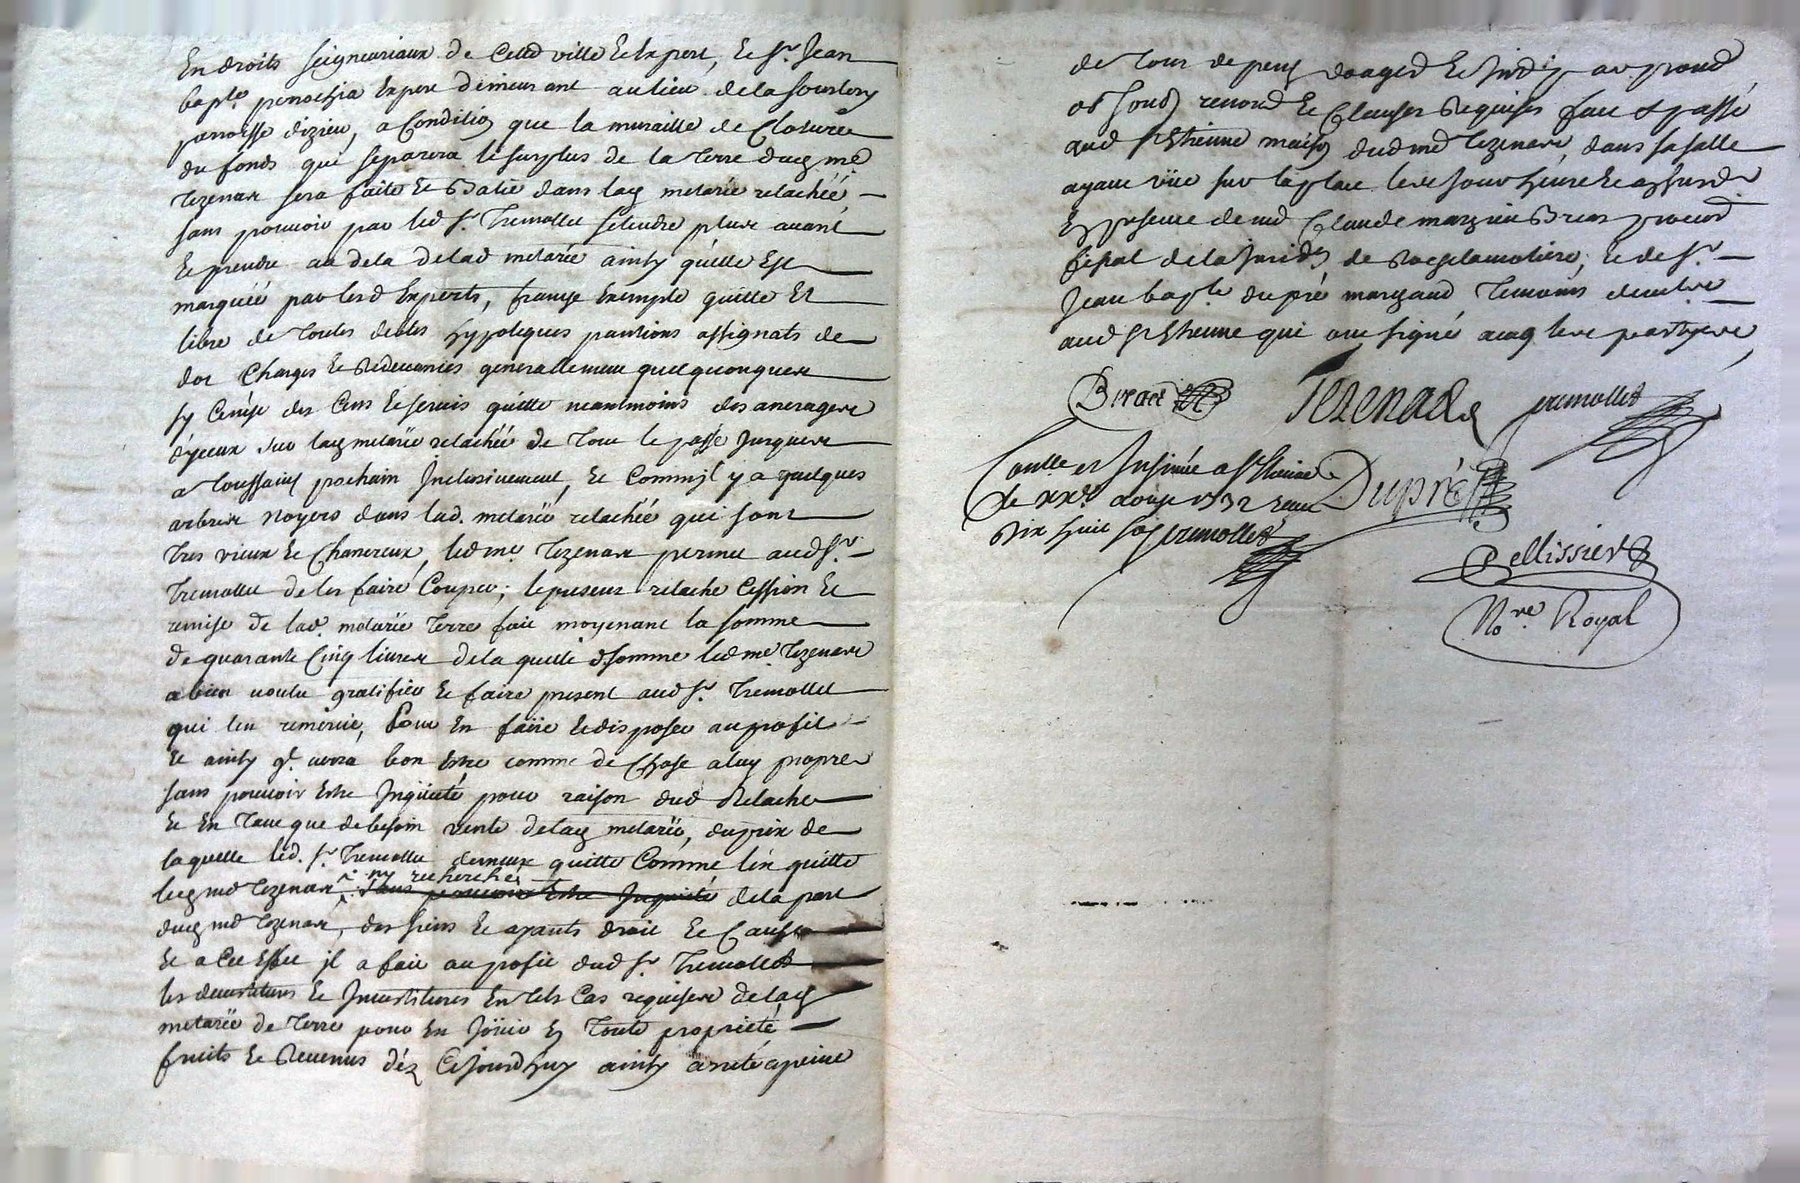 En droits seigneuriaux de cetted ville Et Expert, Et Sr. Jean
bapte. penochia Expert demeurant au lieu de la
paroisse dizieu, a Condition que la muraille de Cloture
du fonds qui separera le surplus de la Terre dud me
Tezenas sera faite Et Batie dans lad meterée relachée
sans pouvoir par led Sr. Tremollet setendre plus avant
Et prendre au dela de lad meterée ainsy qu'elle Est
marquée par lesd Experts, franche Exempte quitte Et
libre de Toutes debtes hypoteques pantions assignats de
dot Charges Et Redevances generallement quelquonques
sy Ce n'est des Cens Et servis quitte neantmoins des arrerages
d'yceux sur lad meterée relachée de Tout le passé Jusques
a Toussaint prochain Inclusivement, Et Comm'il y a quelques
arbres Noyers dans lad. meterée relachée qui sont
Tres vieux Et Chancreux, led me. Tezenas permet aud Sr.
Tremollet de les faire Couper; le present relache Cession Et
remise de lad. meterée Terre fait moyenant la somme
de quarante Cinq livres de la quelle somme led me. Tezenas
a bien voulu gratifier Et faire present aud Sr. Tremollet
qui l'en remercie, Pour En faire Et disposer au profit
Et ainsy q'l verra bon Estre comme de Chose a luy propre
sans pouvoir Estre Inquieté pour raison dud Relache
Et En Tant que de besoin vente de lad meterée, du prix de
laquelle led. Sr. Tremollet demeure quitte Comme l'en quitte
led me Tezenas ny recherché
sans pouvoir Estre Inquieté de la part
dud me Tezenas, des siens Et ayants droit Et Cause
Et a Cet Effet il a fait au profit dud Sr. Tremollet
les devestitures Et Investitures En tels Cas requises de lad
meterée de Terre pour En Joüir En Toute proprieté
fruits Et Revenus dés Cejourdhuy ainsy arreté a peine
de Tous depens domages Et
renond Et Clauses Requises fait Et passé
aud St Etienne maison dud me Tezenas, dans sa salle
ayant vüe sur la place les Jour heure Et
En presence de me Claude
fiscal de la Juridon de Rochelamoliere, Et de Sr.
Jean bapte. dupré marchand Temoins demeurs
aud St Etienne qui ont signé avec les parties
Tezenas Tremollet
Controllé et Insinué a St Etienne
Le aoust 1732 receu
Dix huit Tremollet
Dupré
Pellissier
Nore. Royal